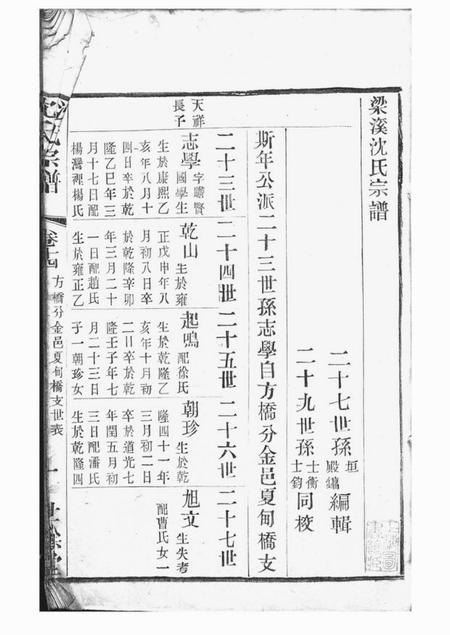 梁溪沈氏宗譜
二十七世孫垣殿鏞編輯
二十九世孫士衡士鈞同校
斯年公派二十三世孫志學自方橋分金邑夏甸橋支
二十三世
二十四世
二十五世
二十六世
二十七世
天祥長子
志學字曦賢國學生
生於康熙乙
亥年八月十
四日卒於乾
隆乙巳年三
月十七日配
楊灣裡楊氏
乾山生於雍
正戊申年八
月初八日卒
於乾隆辛卯
年三月二十
一日配趙氏
生於雍正乙
起鳴配徐氏
生於乾隆乙
亥年十月初
二日卒於乾
隆壬子年七
月二十三日
子一朝珍女
朝珍生於乾
隆四十一年
三月初二日
卒於道光七
年閏五月初
三日配潘氏
生於乾隆四
旭文生失考
配曹氏女一
沈氏宗譜
卷十四
方橋分金邑夏甸橋支世表
一